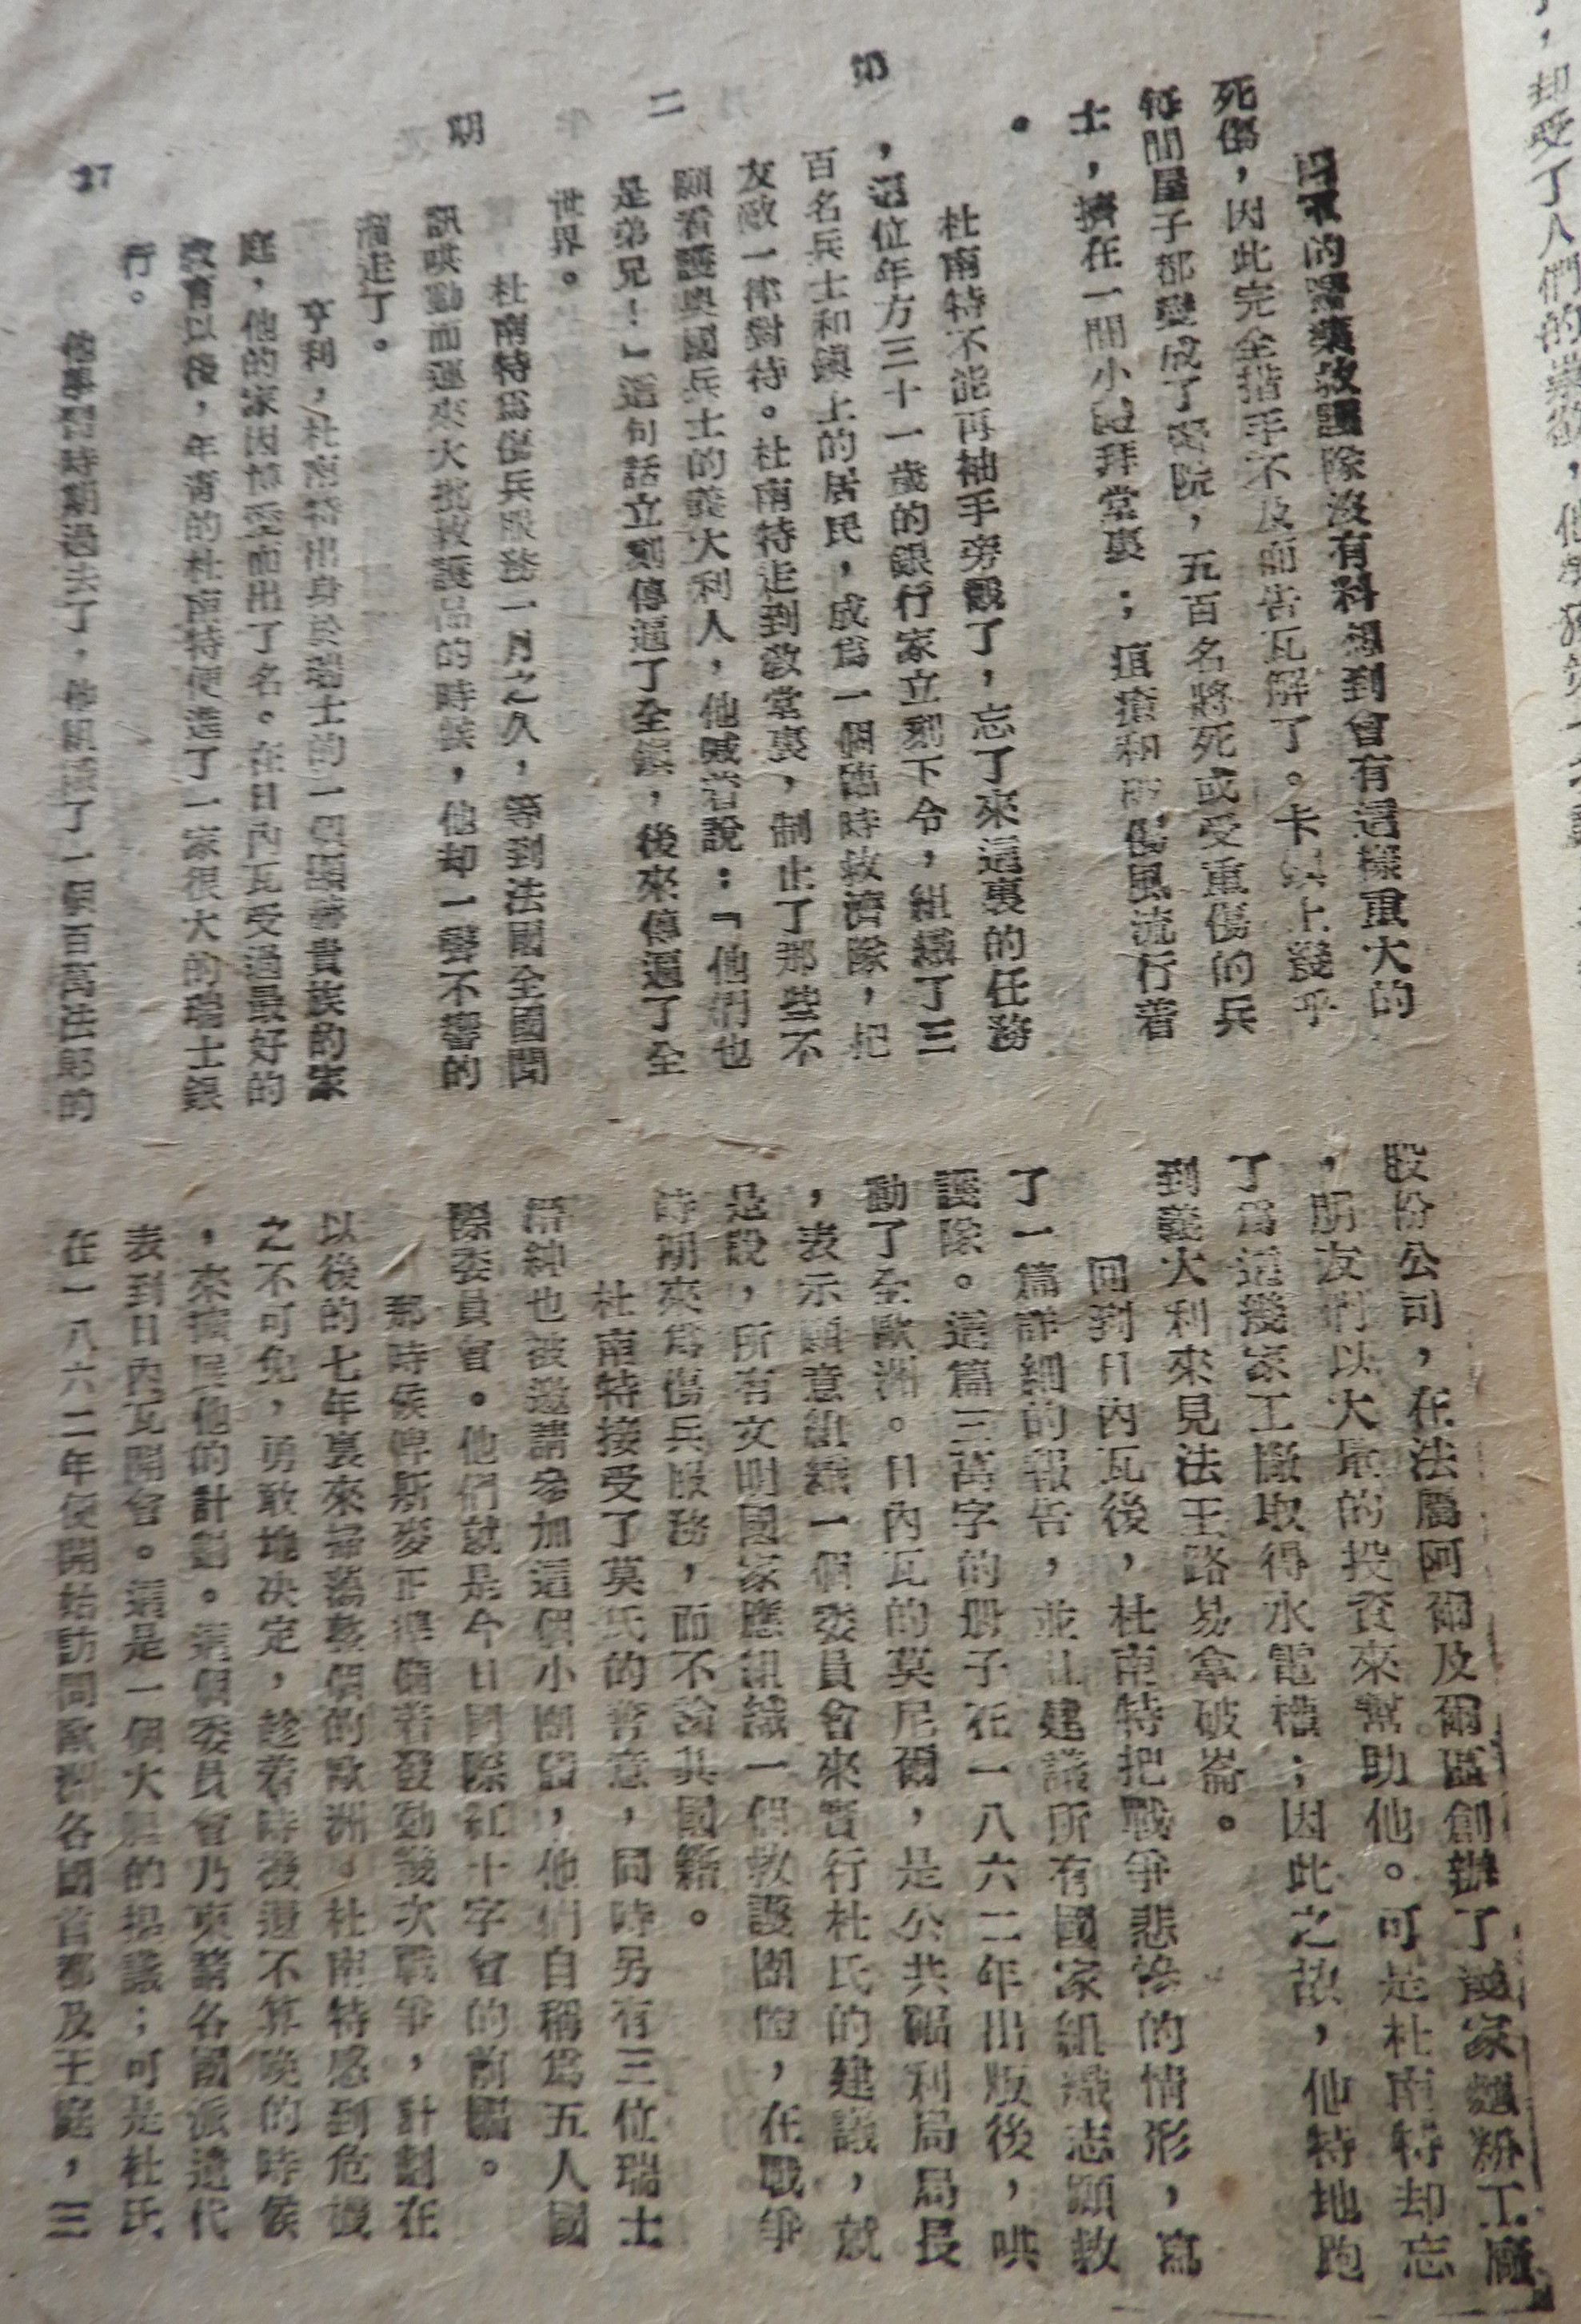 的醫藥救護隊沒有料想到會有這樣重大的
死傷，因此完全措手不及而告瓦解了。卡鎮上幾乎
每間屋子都變成了醫院，五百名將死或受重傷的兵
士，擠在一間小禮拜堂裏；疽瘡和傷風流行着
。
杜南特不能再袖手旁觀了，忘了來這裏的任務
，這位年方三十一歲的銀行家立刻下令，組織了三
百名兵士和鎮上的居民，成爲一個臨時救濟隊，把
友敵一律對待。杜南特走到敎堂裏，制止了那些不
願看護奧國兵士的義大利人，他喊着說：「他們也
是弟兄！」這句話立刻傳遍了全鎮，後來傳遍了全
世界。
杜南特爲傷兵服務一月之久，等到法國全國聞
訊哄動而運來大批救護品的時候，他却一聲不響的
溜走了。
亨利，杜南特出身於瑞士的一個顯赫貴族的家
庭，他的家因博愛而出了名。在日內瓦受過最好的
敎育以後，年青的杜南特便進了一家很大的瑞士銀
行。
他學習時期過去了，他組織了一個百萬法郎的
股份公司，在法屬阿爾及爾區創辦了幾家麵粉工廠
，朋友們以大量的投資來幫助他。可是杜南特却忘
了爲這幾家工廠取得水電權；因此之故，他特地跑
到義大利來見法王路易拿破崙。
回到日內瓦後，杜南特把戰爭悲慘的情形，寫
了一篇詳細的報告，並且建議所有國家組織志願救
護隊。這篇三萬字的册子在一八六二年出版後，哄
動了全歐洲。日內瓦的莫尼爾，是公共福利局局長
，表示願意組織一個委員會來實行杜氏的建議，就
是說，所有文明國家應組織一個救護團體，在戰爭
時期來爲傷兵服務，而不論其國籍。
杜南特接受了莫氏的善意，同時另有三位瑞士
紳也被邀請參加這個小團體，他們自稱爲五人國
際委員會。他們就是今日國際紅十字會的前驅。
那時侯俾斯麥正準備着發動幾次戰爭，計劃在
以後的七年裏來掃蕩整個的歐洲。杜南特感到危機
之不可免，勇敢地决定，趁着時機還不算晚的時侯
，來擴展他的計劃。這個委員會乃柬請各國派遣代
表到日內瓦開會。這是一個大膽的提議；可是杜氏
在一八六二年便開始訪問歐洲各國首都及王庭，三
第二期
27